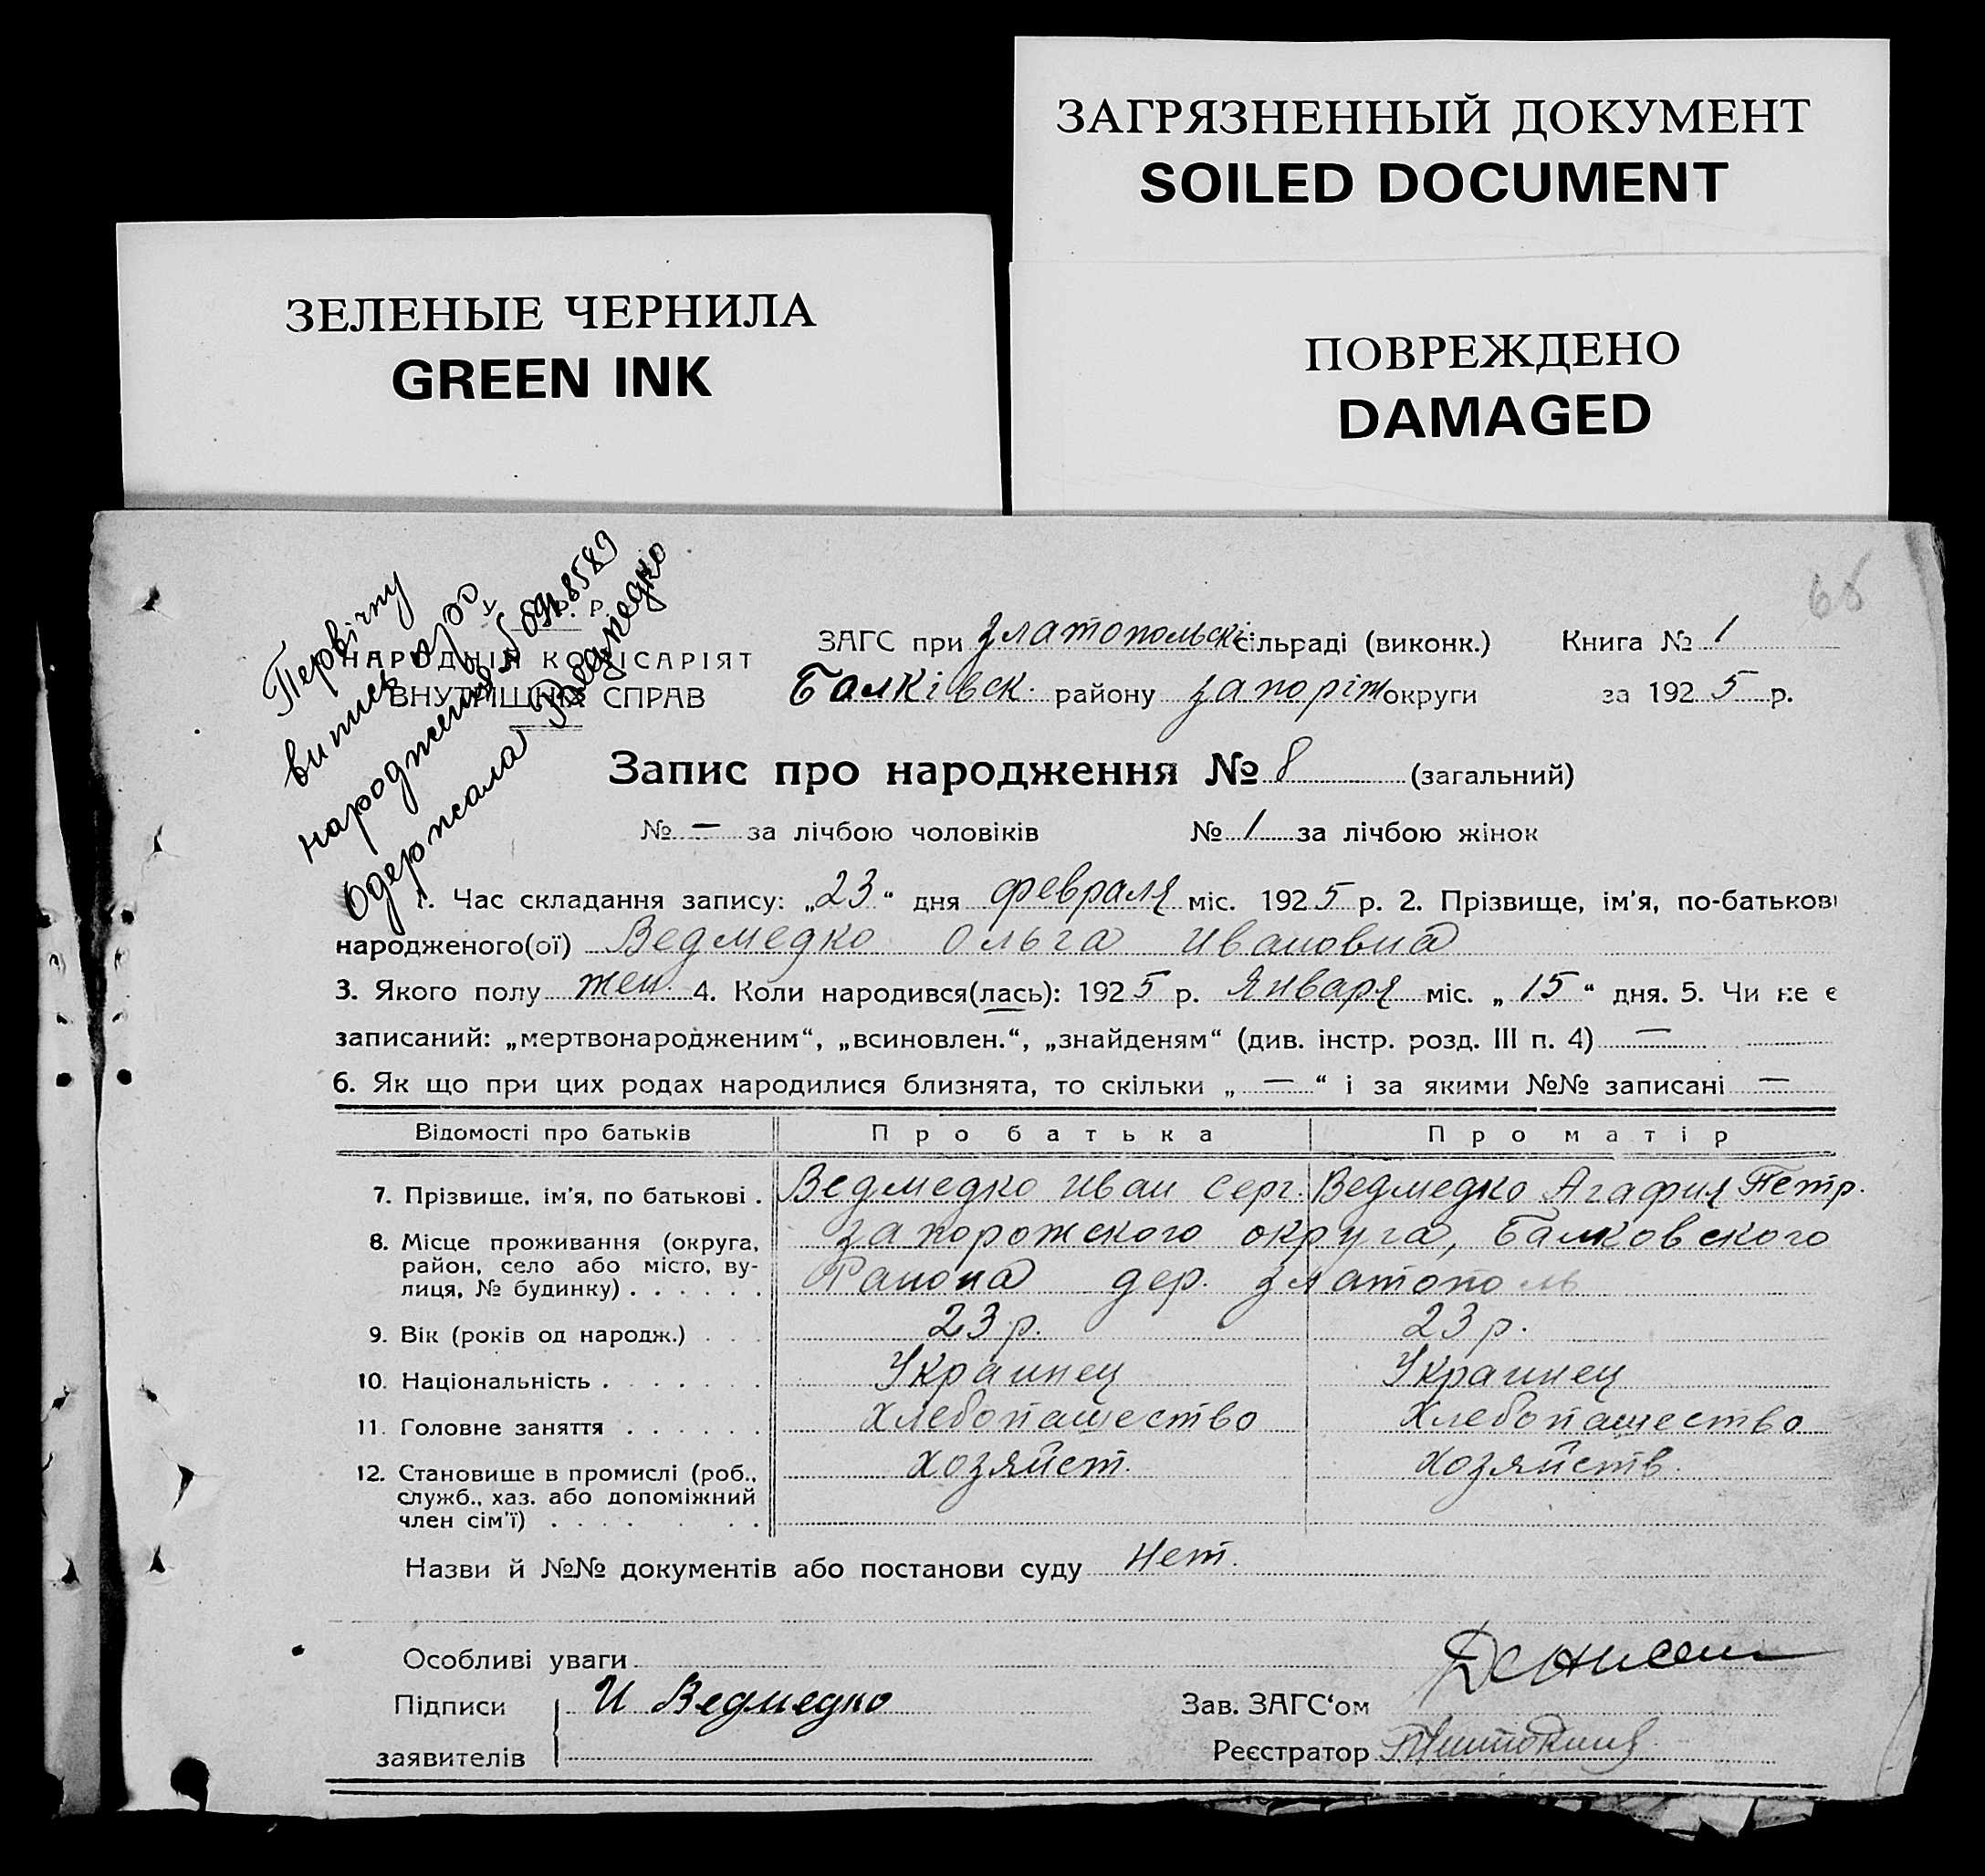 ЗАГРЯЗНЕННЫЙ ДОКУМЕНТ
SOILED DOCUMENT
ЗЕЛЕНЫЕ ЧЕРНИЛА
GREEN INK
ПОВРЕЖДЕНО
DAMAGED
Первічну
випись про
народження
Одержала Ведмедко
НАРОДНІЙ КОМІСАРІЯТ
ВНУТРІШНІХ СПРАВ
ЗАГС при Златопольскі сільраді (виконк.) Книга № 1
Балківск. району Запоріж округи за 1925 р.
Запис про народження № 8 (загальний)
№ — за лічбою чоловіків № 1 за лічбою жінок
1. Час складання запису: „23“ дня февраля міс. 1925 р. 2. Прізвище, ім'я, по-батькові
народженого(ої) Ведмедко Ольга Ивановна
3. Якого полу жен. 4. Коли народився(лась): 1925 р. Января міс. „15“ дня. 5. Чи не є
записаний: „мертвонародженим“, „всиновлен.“, „знайденям“ (див. інстр. розд. III п. 4) —
6. Як що при цих родах народилися близнята, то скільки „ — “ і за якими №№ записані —
Відомості про батьків Про батька Про матір
7. Прізвище, ім'я, по батькові . Ведмедко Иван Серг. Ведмедко Агафия Петр.
8. Місце проживання (округа, Запорожского округа, Балковского
район, село або місто, ву-
лиця, № будинку) . . . . . . Района дер. Златополь
9. Вік (років од народж.) . . . 23 р. 23 р.
10. Національність . . . . . . . Украинец Украинец
11. Головне заняття . . . . . . Хлебопашество Хлебопашество
12. Становище в промислі (роб., хозяйст. хозяйств.
служб., хаз. або допоміжний
член сім'ї) . . . . . .
Назви й №№ документів або постанови суду Нет.
Особливі уваги
Підписи И Ведмедко Зав. ЗАГС'ом
заявителів Реєстратор